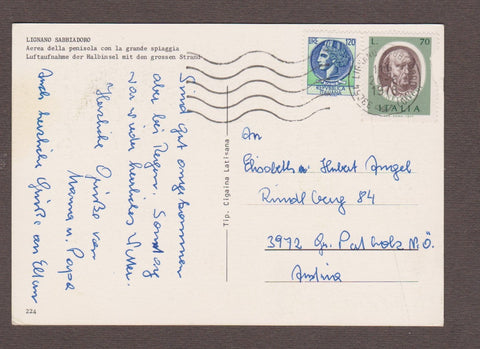 LIGNANO SABBIADORO
Aerea della penisola con la grande spiaggia
Luftaufnahme der Halbinsel mit den grossen Strand
Sind gut angekommen
aber bei Regen. Sonntag
war wieder herrliches Wetter.
Herzliche Grüße von
Mama u. Papa
Auch herzliche Grüße an Eltern
224
Tip. Cigaina Latisana
LIRE 120
L. 70
ITALIA
An
Elisabeth u. Hubert Angel
Rindlberg 84
3972 Gr. Pertholz N.Ö.
Austria